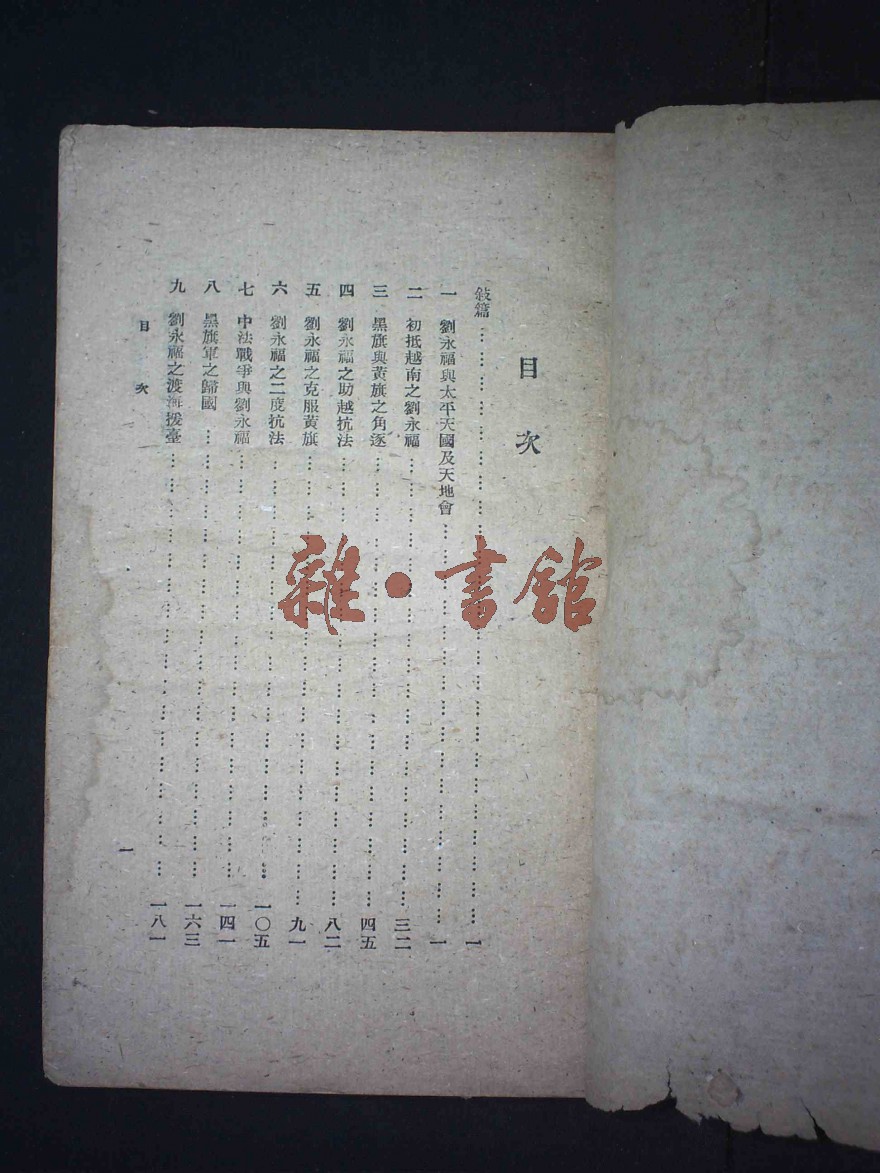 目次
敍篇……………………………………一
一 劉永福與太平天國及天地會……………………一
二 初抵越南之劉永福……………………三二
三 黑旗與黃旗之角逐……………………四五
四 劉永福之助越抗法……………………八二
五 劉永福之克服黃旗……………………九一
六 劉永福之二度抗法……………………一〇五
七 中法戰爭與劉永福……………………一四一
八 黑旗軍之歸國……………………一六三
九 劉永福之渡海援臺……………………一八一
目次
一
雜·書館